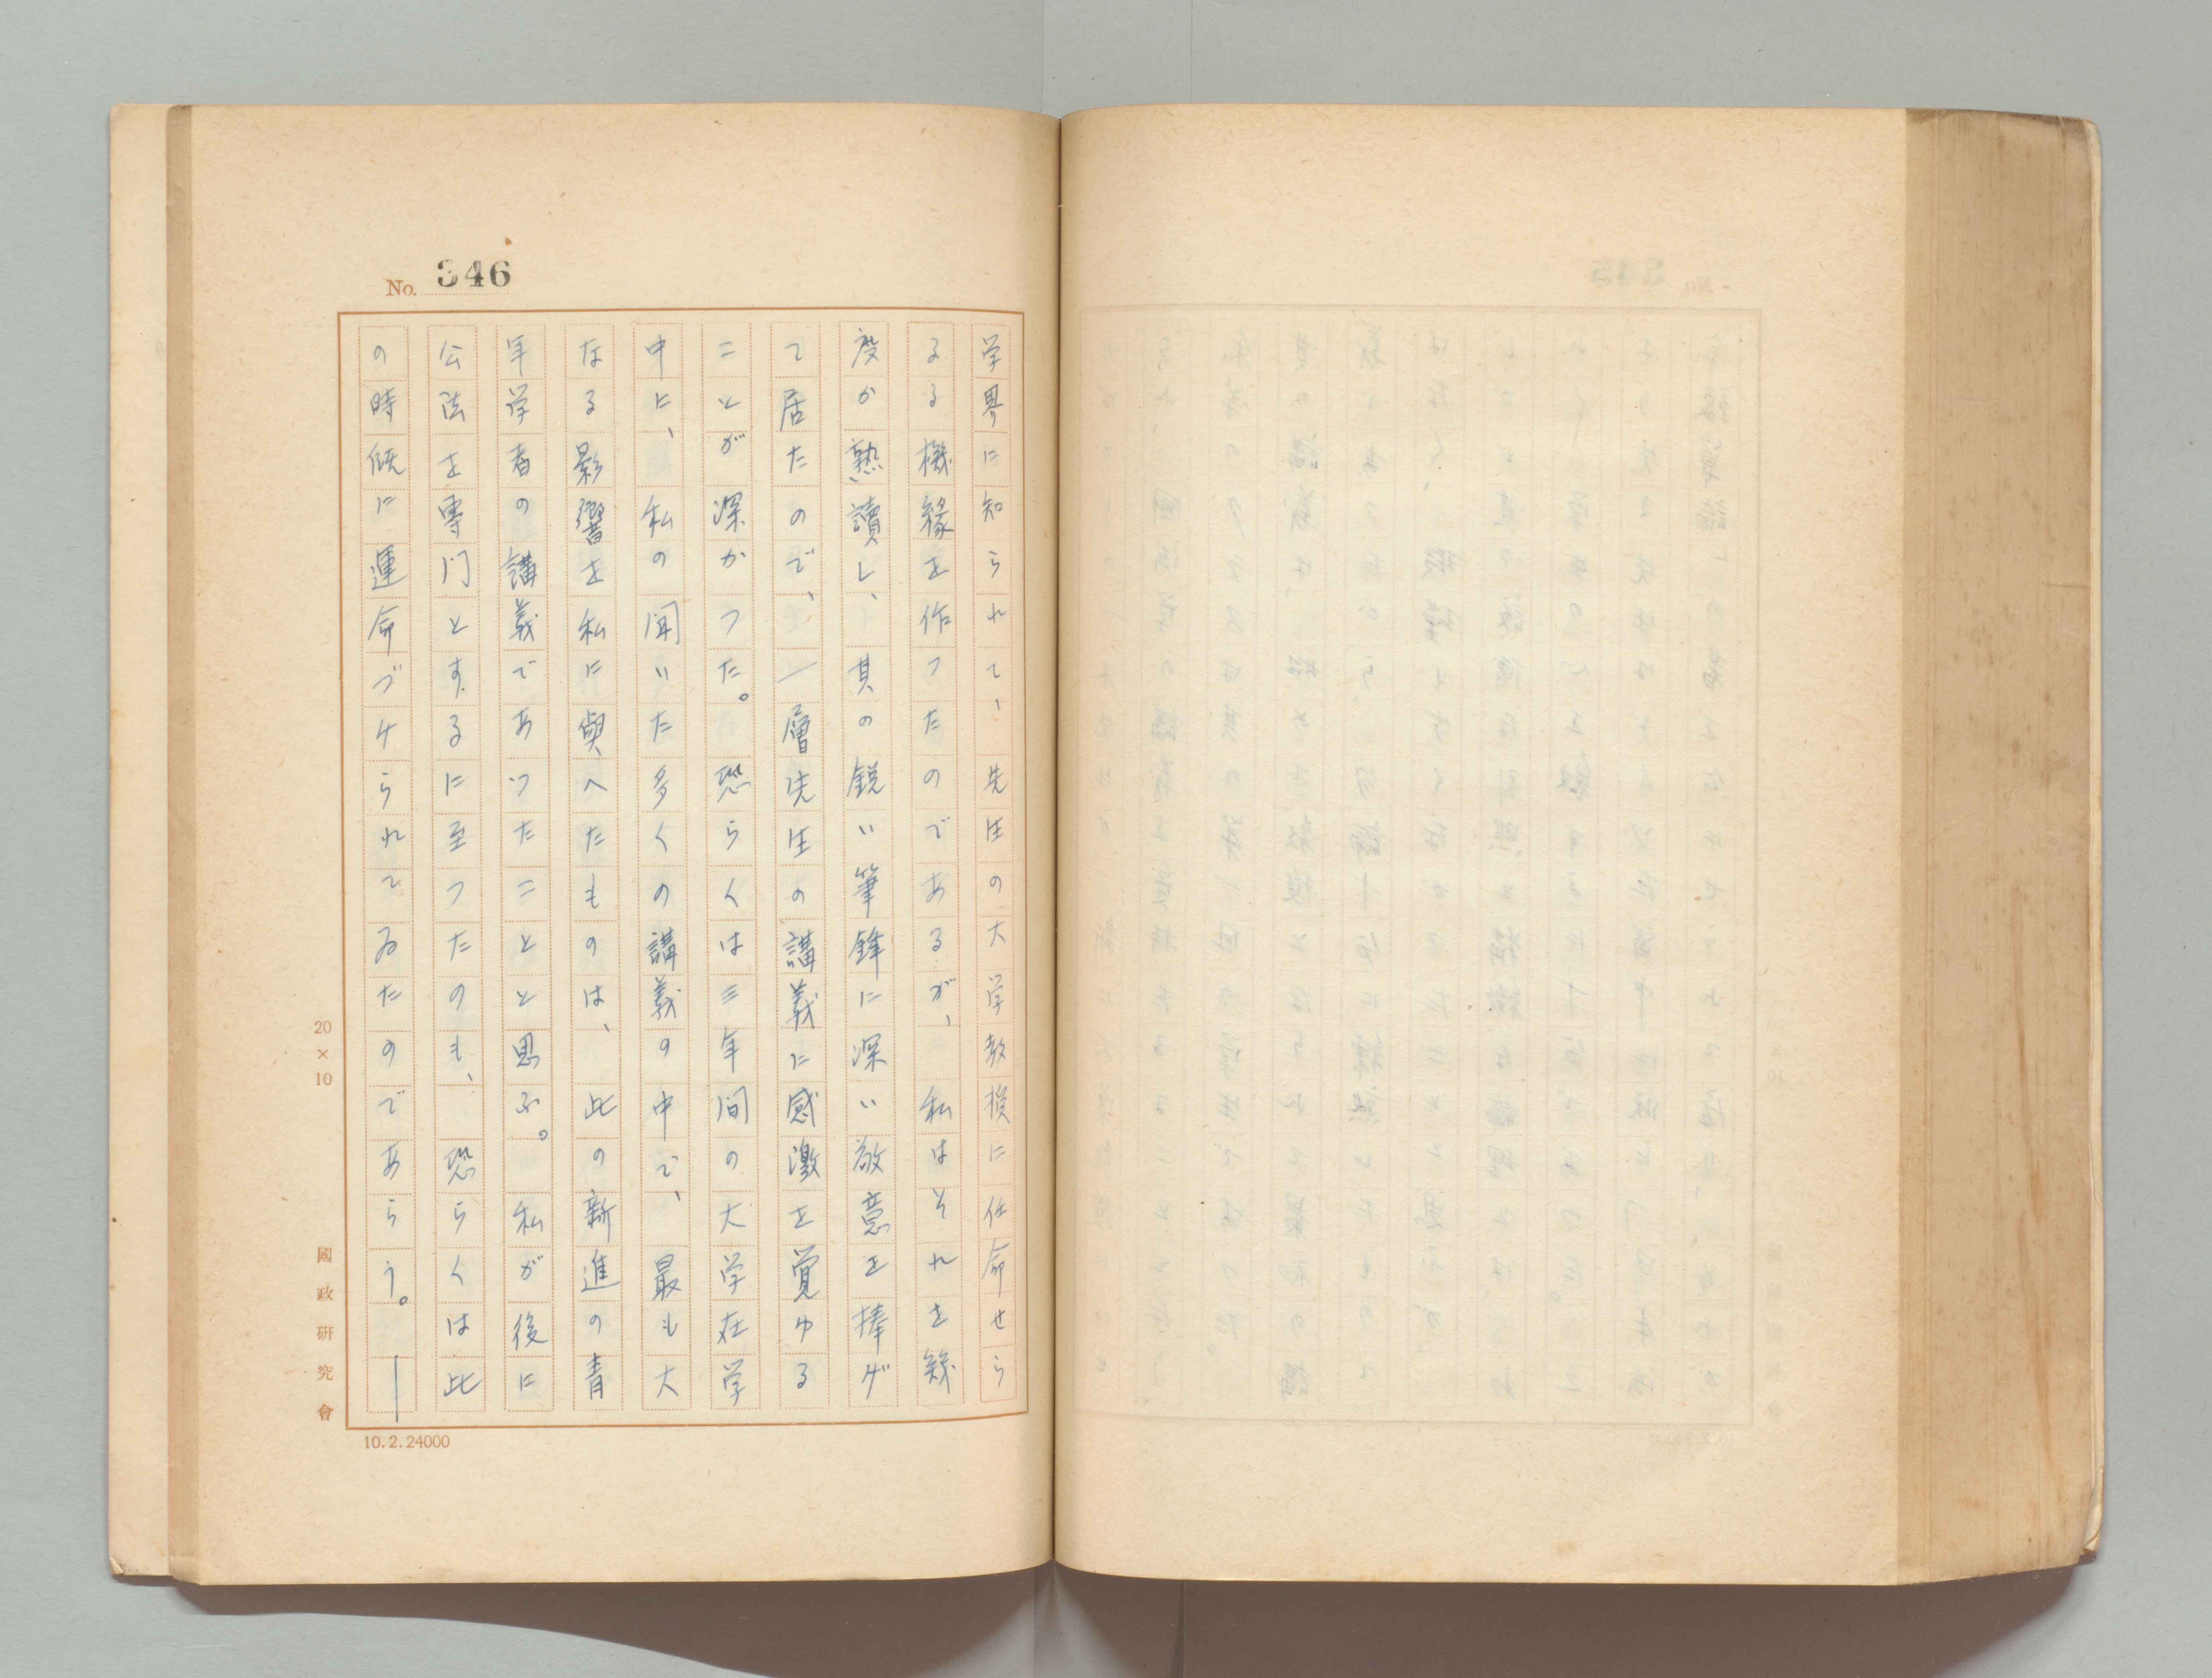 No. 346
学界に知られて、先生の大学教授に任命せら
るる機縁を作つたのであるが、私はそれを幾
度か熟讀し、其の鋭い筆鋒に深い敬意を捧げ
て居たので、一層先生の講義に感激を覚ゆる
ことが深かつた。恐らくは三年間の大学在学
中に、私の聞いた多くの講義の中で、最も大
なる影響を私に與へたものは、此の新進の青
年学者の講義であつたことと思ふ。私が後に
公法を專門とするに至つたのも、恐らくは此
の時既に運命づけられてゐたのであらう。―
20×10
國政研究會
10.2.24000